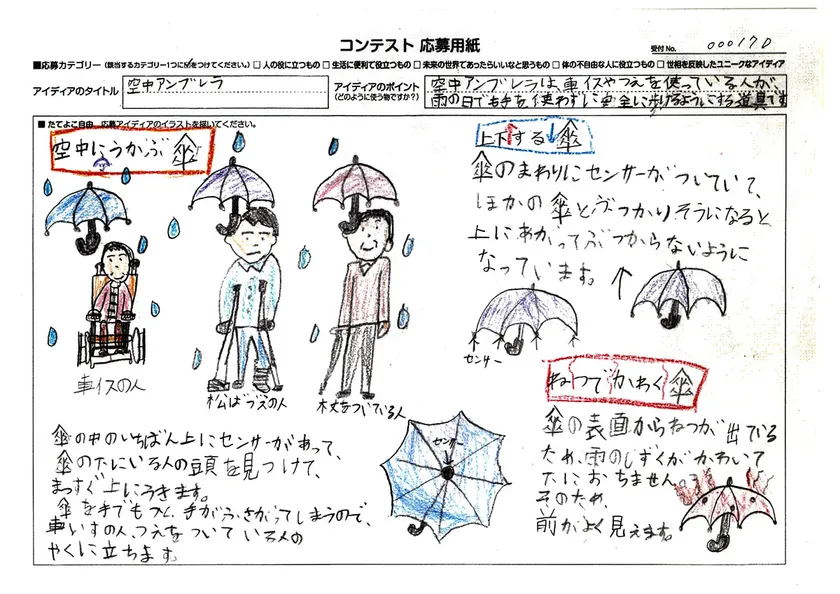 コンテスト 応募用紙
受付No. 00017D
■応募カテゴリー(該当するカテゴリー1つに○をつけてください。) □ 人の役に立つもの □ 生活に便利で役立つもの □ 未来の世界であったらいいなと思うもの □ 体の不自由な人に役立つもの □ 世相を反映したユニークなアイディア
アイディアのタイトル
空中アンブレラ
アイディアのポイント
(どのように使う物ですか?)
空中アンブレラは、車イスやつえを使っている人が、
雨の日でも手を使わずに安全に歩けるようにする道具です
■ たてよこ自由 応募アイディアのイラストを描いてください。
空中にうかぶ傘
車イスの人
松ばづえの人
杖をついている人
傘の中のいちばん上にセンサーがあって、
傘の下にいる人の頭を見つけて、
まっすぐ上にうきます。
傘を手でもつと、手がふさがってしまうので、
車いすの人、つえをついている人の
やくに立ちます。
センサー
上下する傘
傘のまわりにセンサーがついていて、
ほかの傘とぶつかりそうになると
上にあがってぶつからないように
なっています。
センサー
ねつでかわく傘
傘の表面からねつが出ている
ため、雨のしずくがかわいて
下におちません。
そのため、
前がよく見えます。